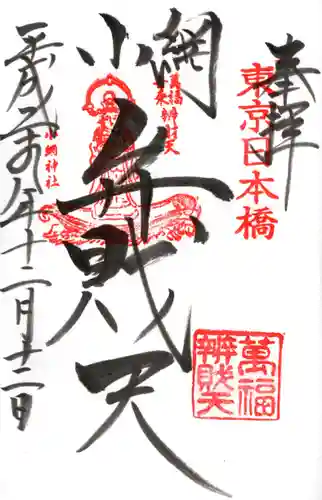 奉拝
東京日本橋
小網
萬福
舟財天
弁財天
小網神社
萬福
辨財天
平成二十九年十二月十二日